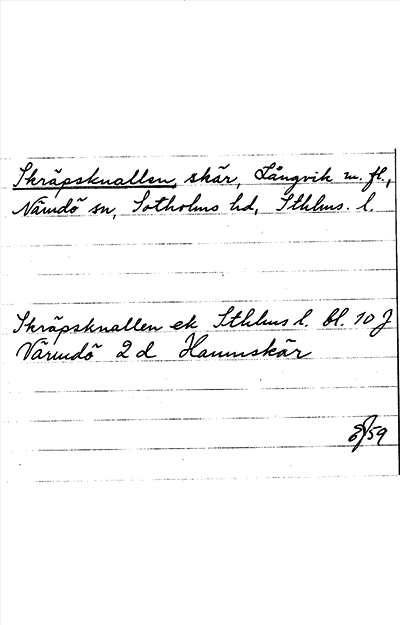 Skräpsknallen, skär, Långvik m. fl.,
Nämdö sn, Sotholms hd, Sthlms. l.
Skräpsknallen ek Sthlms l. bl. 10 J
Värmdö 2 d Hamnskär
59